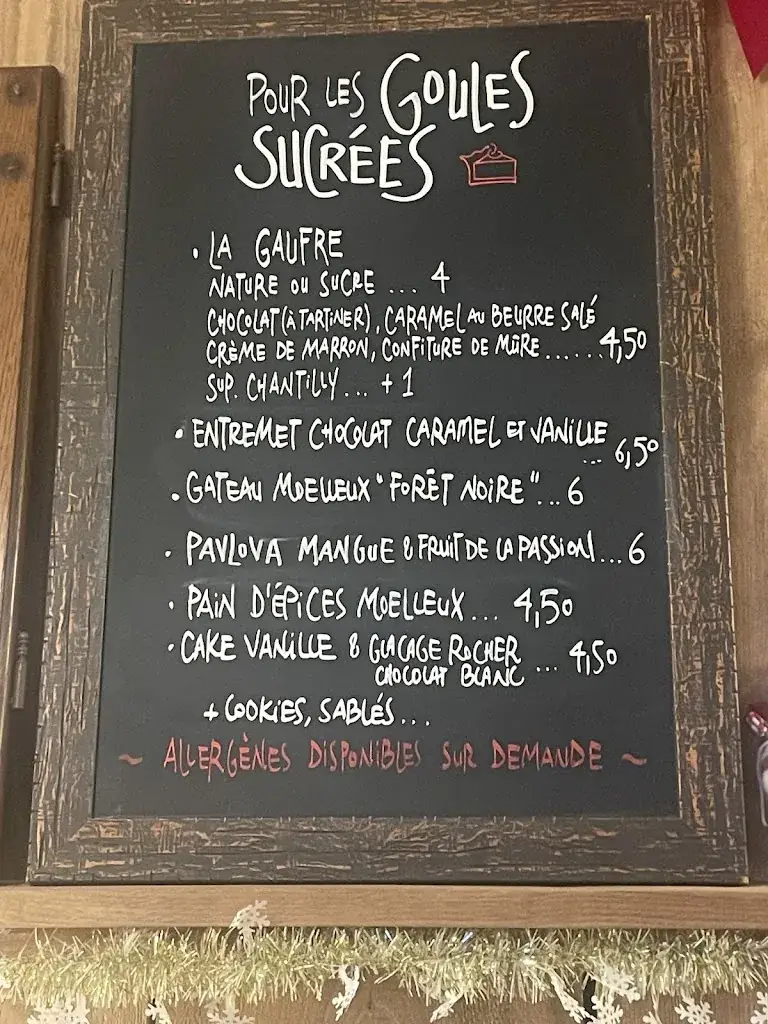 POUR LES GOULES
SUCRÉES
• LA GAUFRE
NATURE OU SUCRE ... 4
CHOCOLAT (À TARTINER), CARAMEL AU BEURRE SALÉ
CRÈME DE MARRON, CONFITURE DE MÛRE ...... 4,50
SUP. CHANTILLY ... + 1
• ENTREMET CHOCOLAT CARAMEL ET VANILLE
... 6,50
• GATEAU MOELLEUX "FORÊT NOIRE" ... 6
• PAVLOVA MANGUE & FRUIT DE LA PASSION ... 6
• PAIN D'ÉPICES MOELLEUX ... 4,50
• CAKE VANILLE & GLACAGE ROCHER
CHOCOLAT BLANC ... 4,50
+ COOKIES, SABLÉS ...
~ ALLERGÈNES DISPONIBLES SUR DEMANDE ~